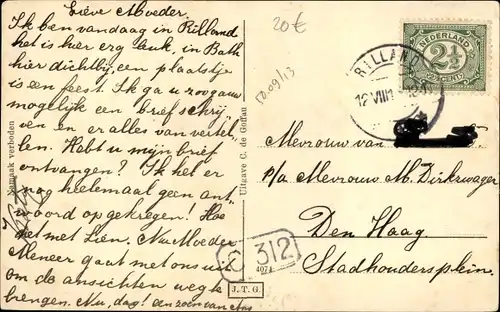 Lieve Moeder.
Ik ben vandaag in Rilland
het is hier erg leuk, in Bath
hier dichtbij, een plaatsje
is een feest. Ik ga u zoo gauw
mogelijk een brief schrij-
ven en er alles van vertel-
len. Hebt u mijn brief
ontvangen? Ik heb er
nog heelemaal geen ant-
woord op gekregen! Hoe
is het met Lien. Nu Moeder
Meneer gaat met ons uit
om de ansichten weg te
brengen. Nu, dag! een zoen van
20€
12.09/13
Namaak verboden
Uitgave C. de Goffau
J. T. G.
6 312
4074
NEDERLAND
2½
CENT
RILLAND
12 VIII
Mevrouw van
p/a Mevrouw M. Dirkzwager
Den Haag.
Stadhoudersplein.